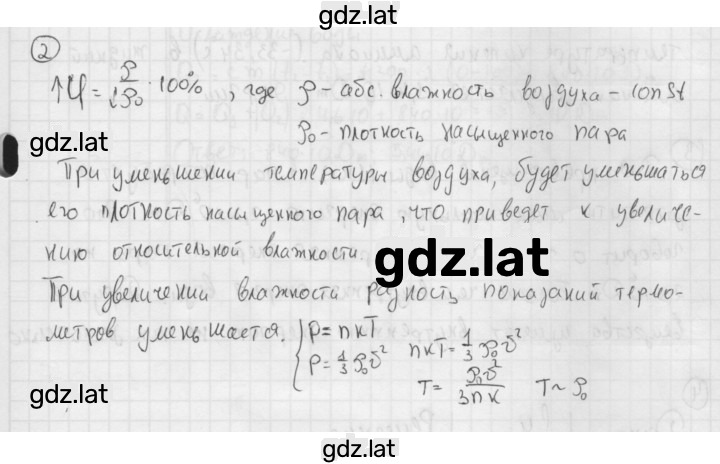 gdz.lat
2
↑φ = ρ/↓ρ₀ · 100% , где ρ - абс. влажность воздуха - const
ρ₀ - плотность насыщенного пара
gdz.lat
При уменьшении температуры воздуха, будет уменьшаться
его плотность насыщенного пара, что приведет к увеличе-
нию относительной влажности.
gdz.lat
При увеличении влажности разность показаний термо-
метров уменьшается.
{ p = nkT
p = 1/3 ρ₀v̄²
nkT = 1/3 ρ₀v̄²
T = ρ₀v̄²/3nk T ~ ρ₀
gdz.lat
gdz.lat